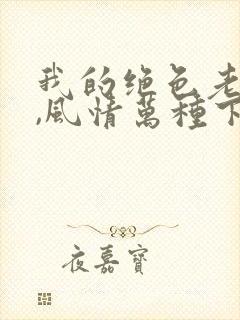 我的绝色老
,风情萬種下
夜嘉寶